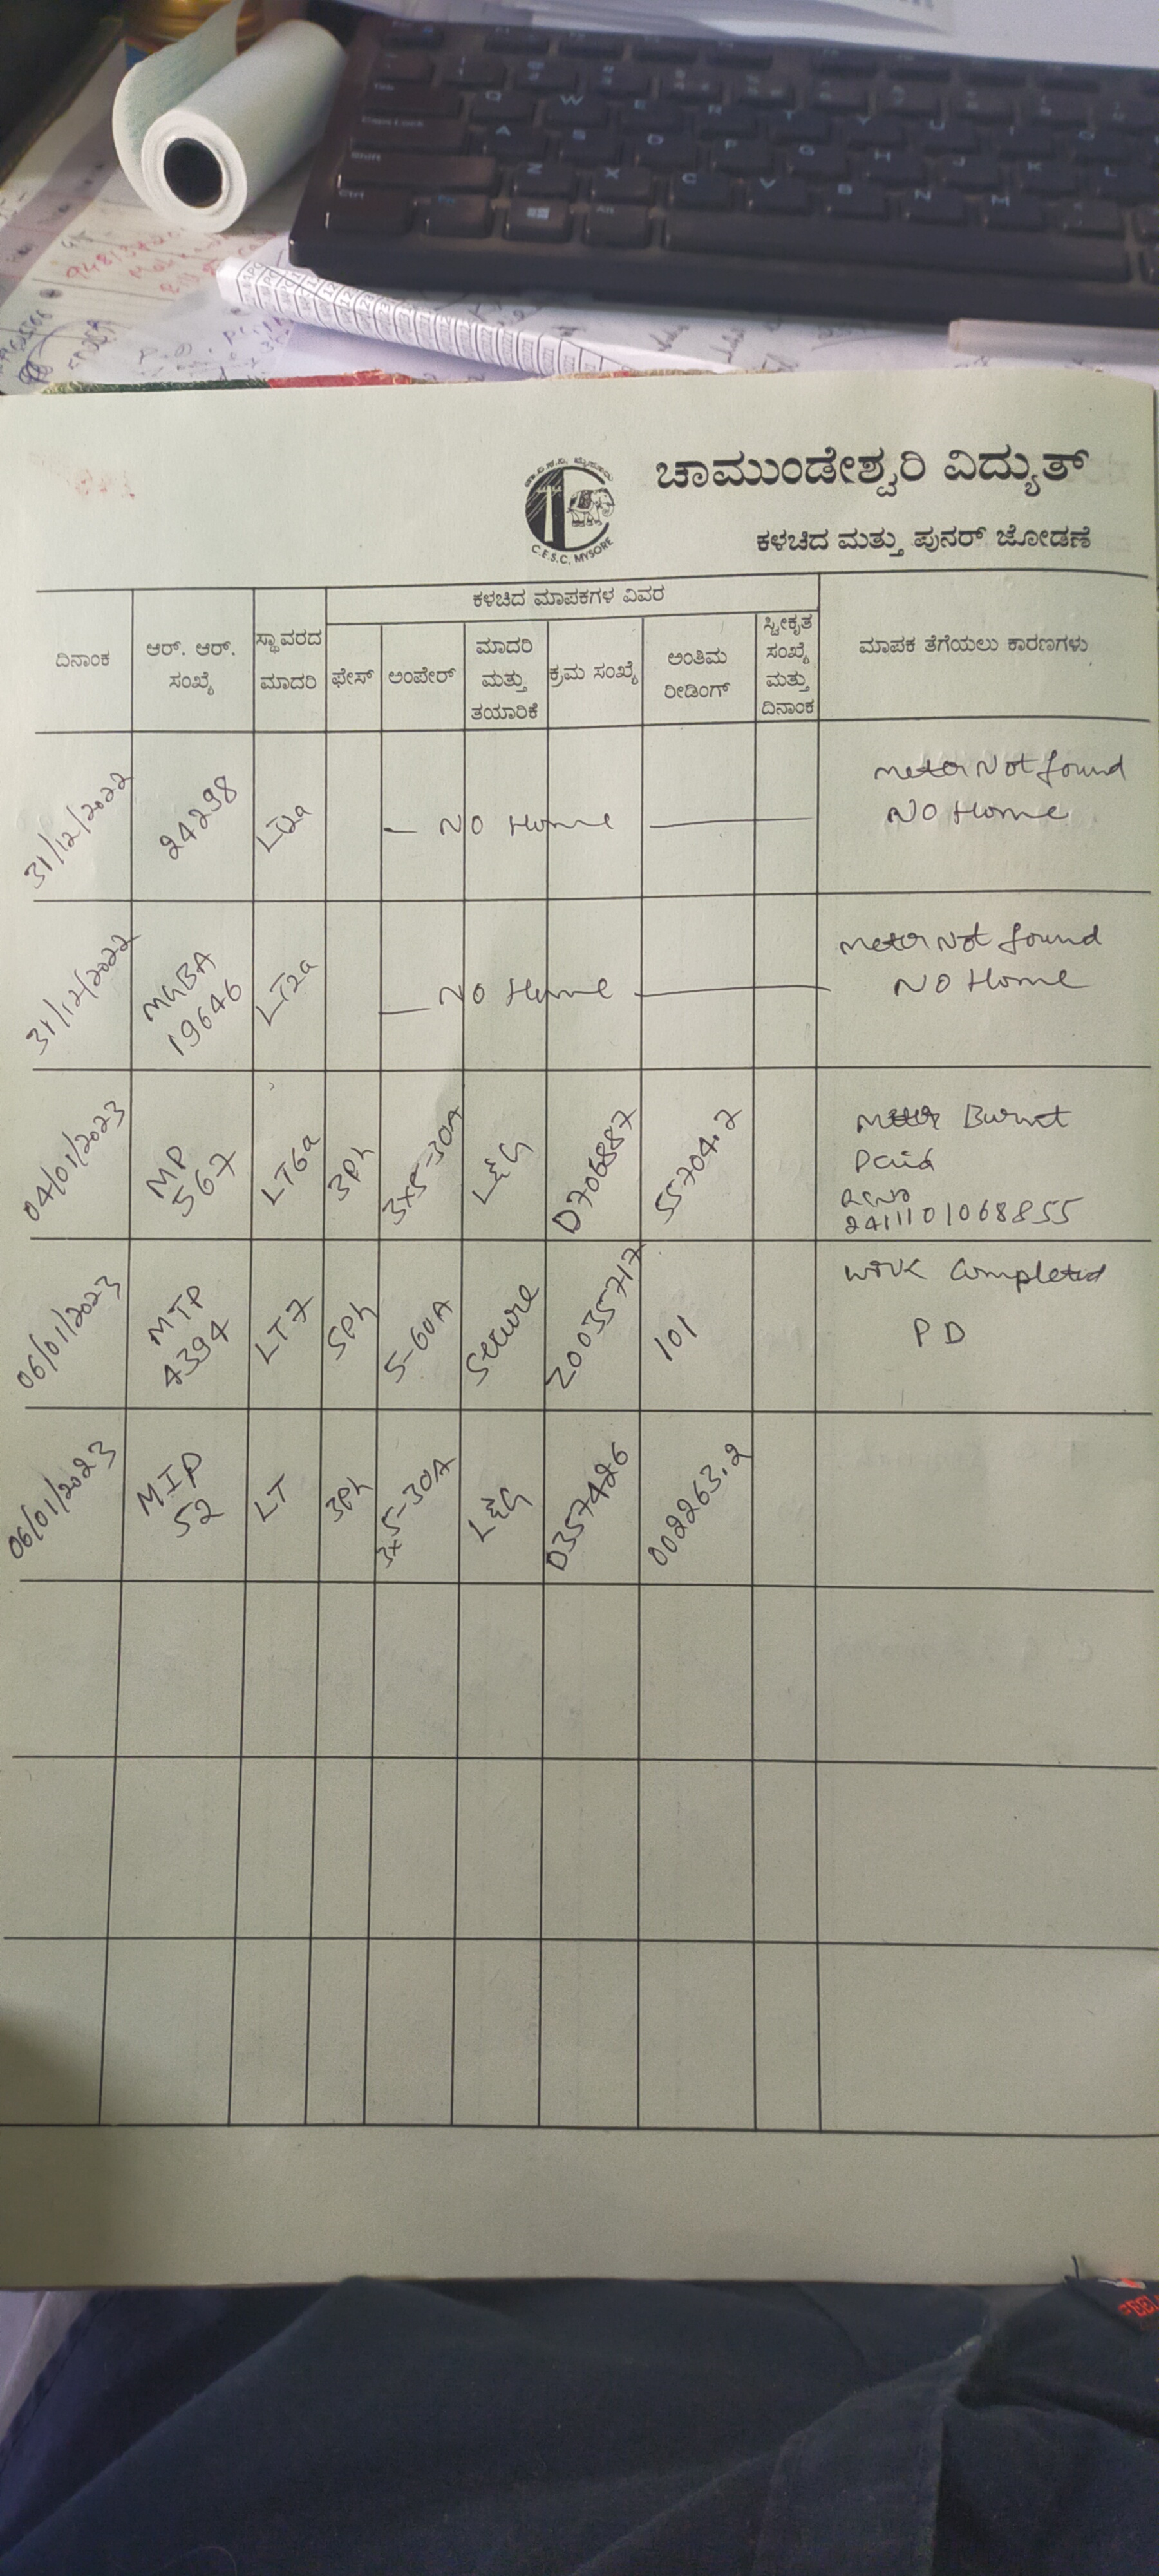 ಚಾ.ವಿ.ಸ.ನಿ. ಮೈಸೂರು
C.E.S.C, MYSORE
ಚಾಮುಂಡೇಶ್ವರಿ ವಿದ್ಯುತ್
ಕಳಚಿದ ಮತ್ತು ಪುನರ್ ಜೋಡಣೆ
ಕಳಚಿದ ಮಾಪಕಗಳ ವಿವರ
ದಿನಾಂಕ
ಆರ್. ಆರ್.
ಸಂಖ್ಯೆ
ಸ್ಥಾವರದ
ಮಾದರಿ
ಫೇಸ್
ಅಂಪೇರ್
ಮಾದರಿ
ಮತ್ತು
ತಯಾರಿಕೆ
ಕ್ರಮ ಸಂಖ್ಯೆ
ಅಂತಿಮ
ರೀಡಿಂಗ್
ಸ್ವೀಕೃತ
ಸಂಖ್ಯೆ
ಮತ್ತು
ದಿನಾಂಕ
ಮಾಪಕ ತೆಗೆಯಲು ಕಾರಣಗಳು
31/12/2022
24298
LT2a
NO Home
meter Not found
NO Home
31/12/2022
MGBA
19646
LT2a
NO Home
meter Not found
NO Home
04/01/2023
MP
567
LT6a
3Ph
3x5-30A
L&G
D706887
55704.2
meter Burnt
Paid
2411101068855
06/01/2023
MTP
4394
LT7
SPh
5-60A
Secure
20035717
101
work Completed
PD
06/01/2023
MIP
52
LT
3Ph
3x5-30A
L&G
D357426
002263.2